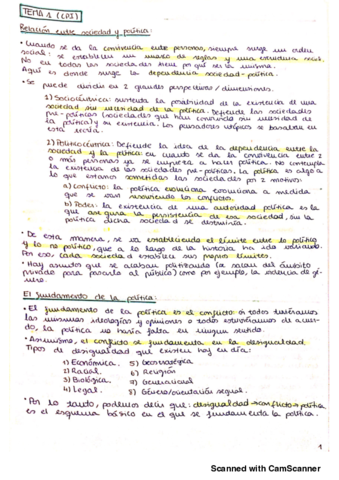 TEMA 1 (CPI)
Relación entre sociedad y política:
• Cuando se da la convivencia entre personas, siempre surge un orden
social: se establecen un marco de reglas y una estructura social.
No en todas las sociedades tiene por qué ser la misma.
Aquí es donde surge la dependencia sociedad-política.
• Se puede dividir en 2 grandes perspectivas / dimensiones.
1) Sociocéntrica: sustenta la posibilidad de la existencia de una
sociedad sin necesidad de la política. Defiende las sociedades
pre-políticas (sociedades que han convivido sin necesidad de
la política) y su existencia. Los pensadores utópicos se basaban en
esta teoría.
2) Politicocéntrica: Defiende la idea de la dependencia entre la
sociedad y la política: en cuanto se da la convivencia entre 2
o más personas ya se empieza a hacer política. No contempla
la existencia de las sociedades pre-políticas. La política es algo a
lo que estamos sometidas las sociedades por 2 motivos:
a) conflicto: la política evoluciona a medida
que se van resolviendo los conflictos.
b) Poder: la existencia de una autoridad política es la
que asegura la persistencia de esa sociedad, sin la
política dicha sociedad se destruiría.
• De esta manera, se va estableciendo el límite entre lo político
y lo no político, que a lo largo de la historia ha ido variando.
Por eso, cada sociedad establece sus propios límites.
• Hay asuntos que se acaban politizando (lo sacan del ámbito
privado para pasarlo al público) como por ejemplo, la violencia de gé-
nero.
El fundamento de la política:
• El fundamento de la política es el conflicto: si todos tuviéramos
las mismas ideologías y opiniones o todos estuviéramos de acuer-
do, la política no haría falta en ningún sentido.
• Asimismo, el conflicto se fundamenta en la desigualdad.
Tipos de desigualdad que existen hoy en día:
1) Económica. 5)
2) Racial. 6) Religión
3) Biológica. 7) Generacional
4) Legal. 8) Género/orientación sexual.
• Por lo tanto, podemos decir que: desigualdad → conflicto → política
es el esquema básico en el que se fundamenta la política.
1
Scanned with CamScanner